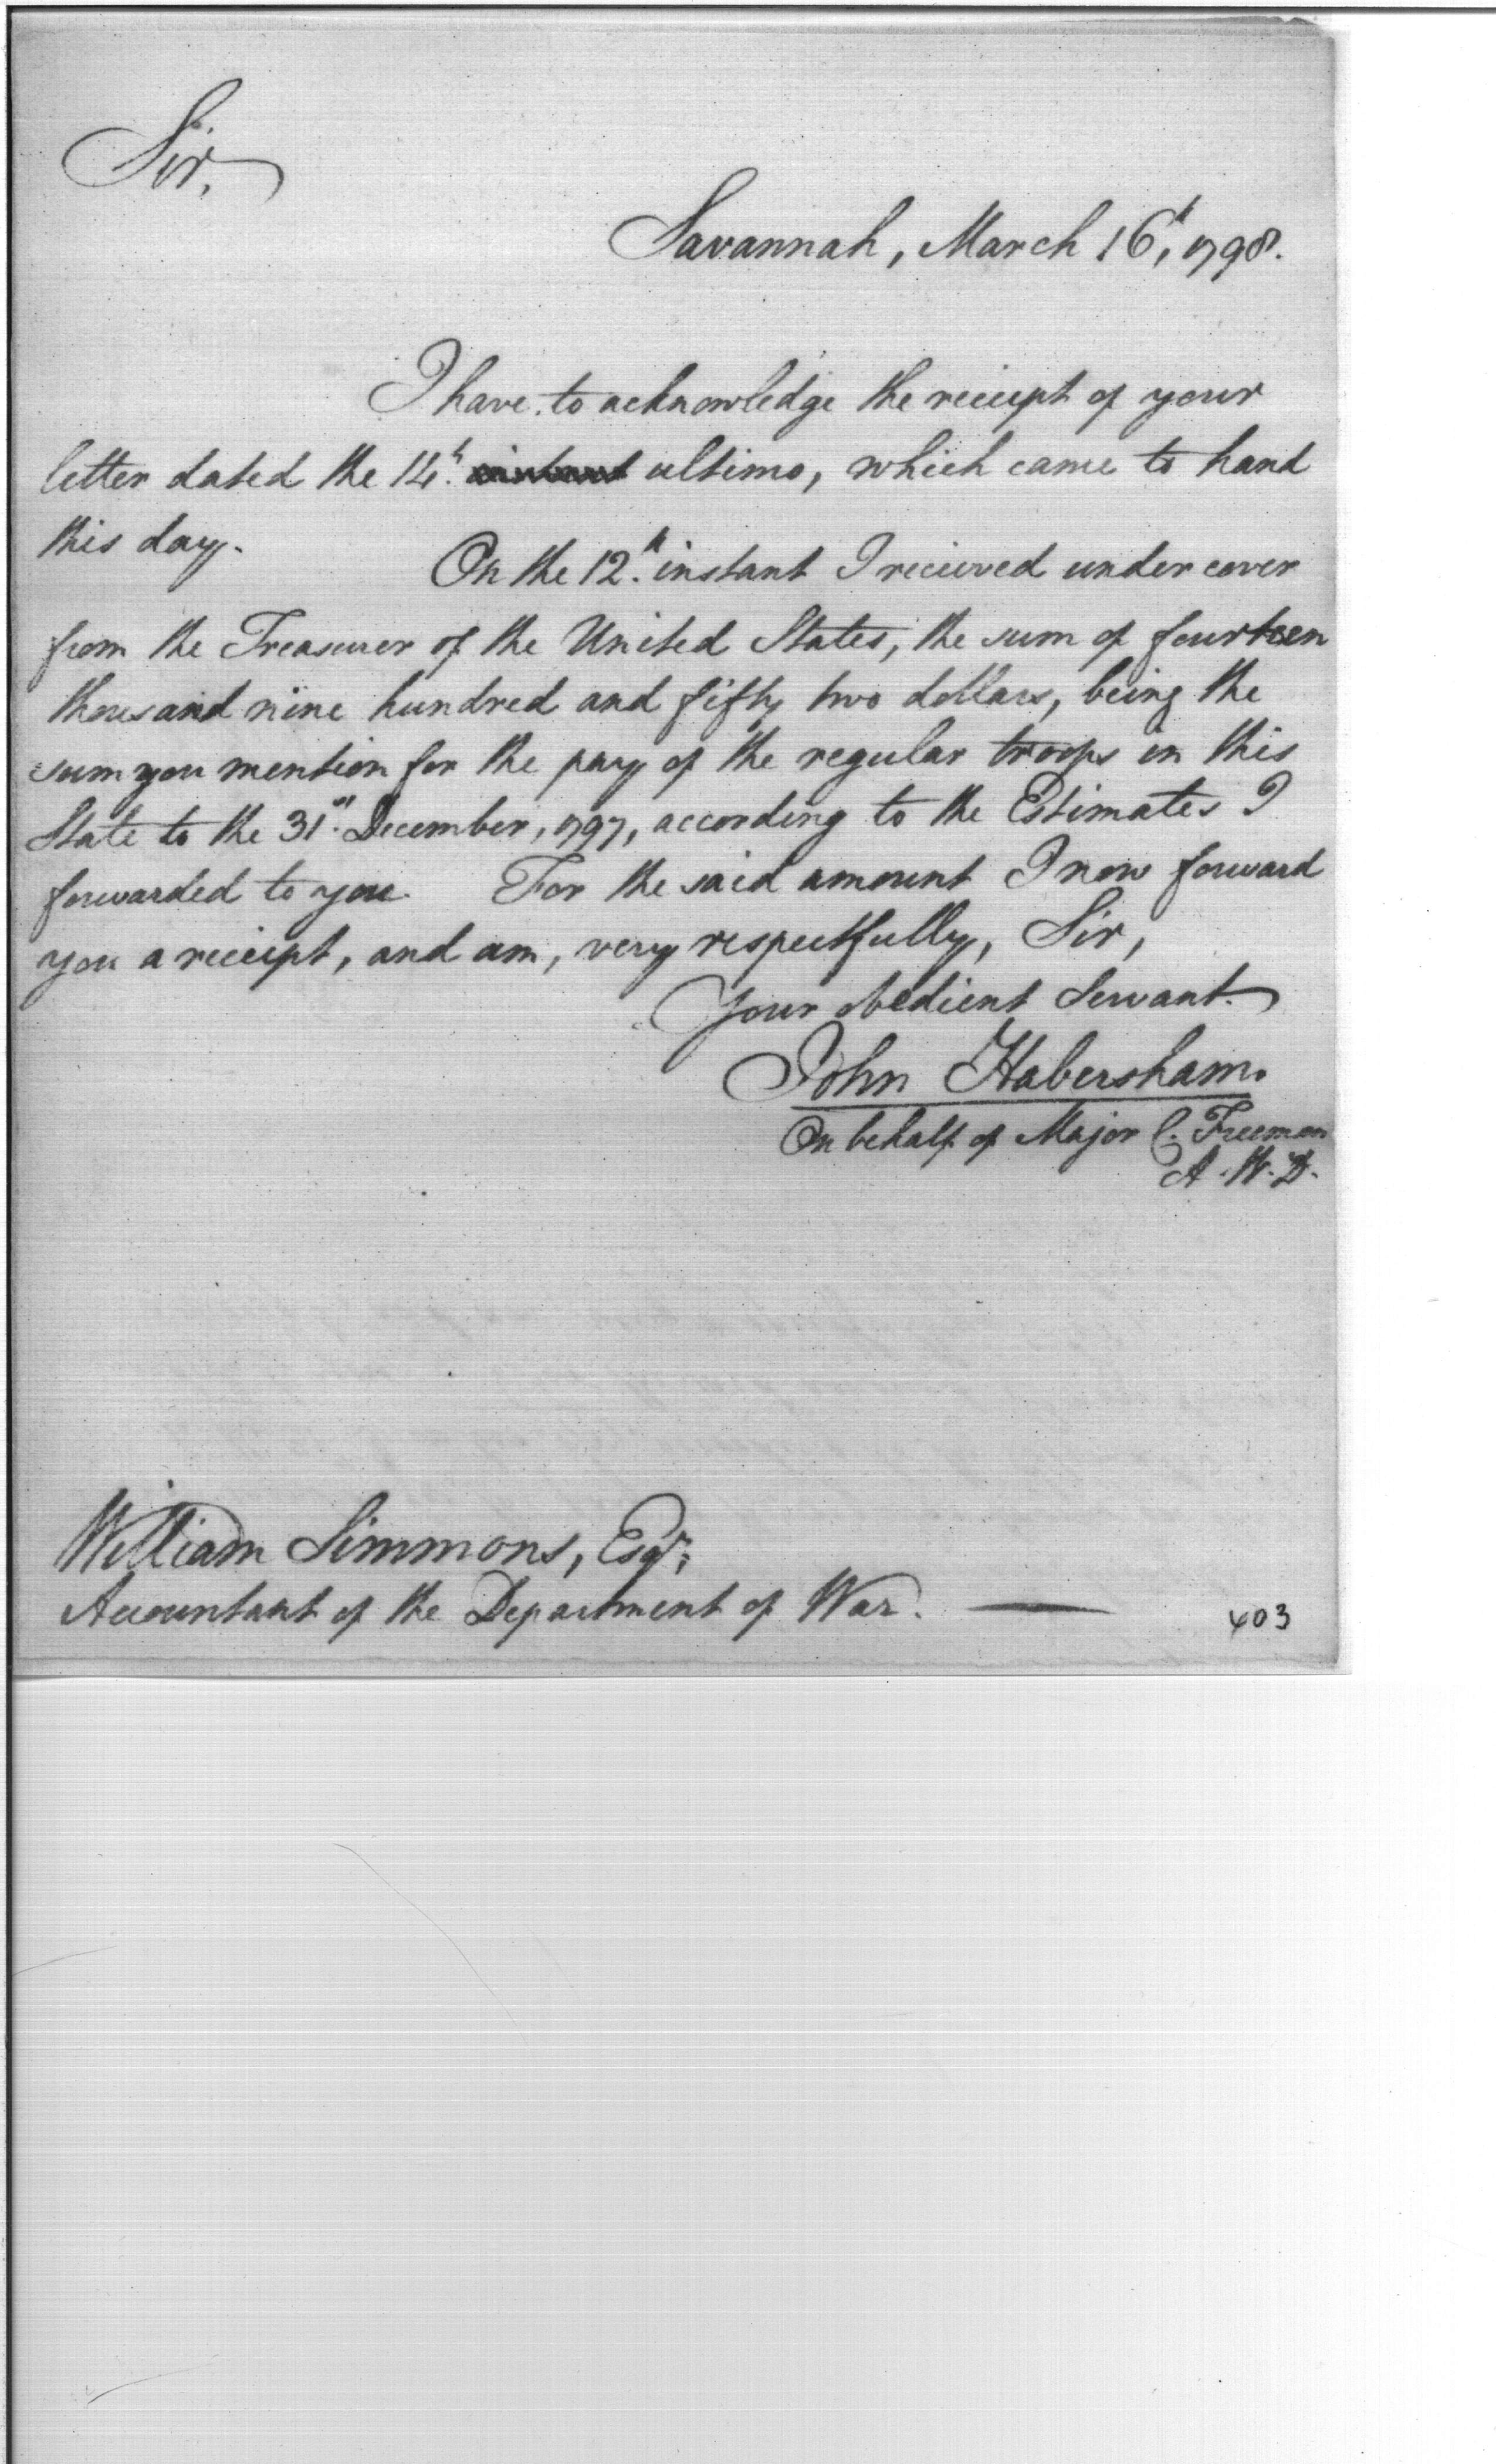 Sir,
Savannah, March 16th, 1798.
I have to acknowledge the reciept of your
letter dated the 14th. ultimo, which came to hand
this day.
On the 12th. instant I recieved under cover
from the Treasurer of the United States, the sum of fourteen
thousand nine hundred and fifty two dollars, being the
sum you mention for the pay of the regular troops in this
State to the 31st. December, 1797, according to the Estimates I
forwarded to you. For the said amount I now forward
you a reciept, and am, very respectfully, Sir,
Your obedient Servant.
John Habersham.
On behalf of Major C. Freeman
A. W. D.
William Simmons, Esqr;
Accountant of the Department of War. —
403